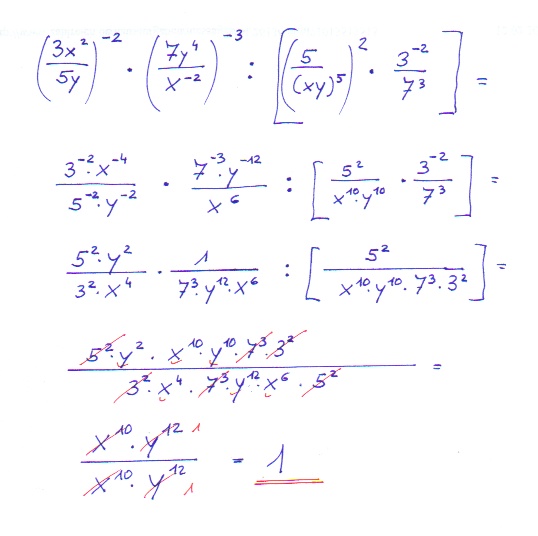 (3x²/5y)⁻² · (7y⁴/x⁻²)⁻³ : [(5/(xy)⁵)² · 3⁻²/7³] =
3⁻²·x⁻⁴/5⁻²·y⁻² · 7⁻³·y⁻¹²/x⁶ : [5²/x¹⁰·y¹⁰ · 3⁻²/7³] =
5²·y²/3²·x⁴ · 1/7³·y¹²·x⁶ : [5²/x¹⁰·y¹⁰·7³·3²] =
5²·y² · x¹⁰·y¹⁰·7³·3²/3²·x⁴·7³·y¹²·x⁶·5² =
x¹⁰·y¹² 1/x¹⁰·y¹² 1 = 1